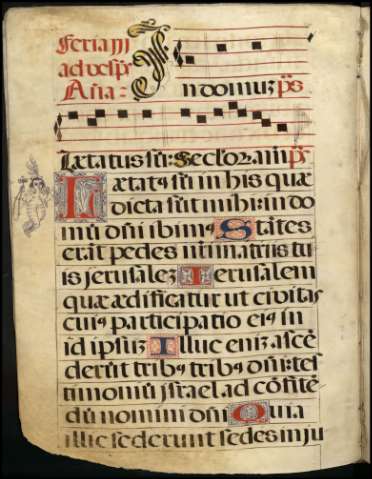 Feria iij
ad vesp̄r
Aña:
In domuȝ
p̄s
Lætatus sū: Seclor. am. p̄s
Lætatꝰ sū in his quæ
dicta sūt mihi: in do
mū dn̄i ibimꝰ Stātes
erāt pedes nr̄i in atriis tu
is jerusaleȝ Ierusalem
quæ ædificatur ut civitas
cuiꝰ participatio eiꝰ in
id ipsuȝ Illuc eniȝ ascē
derūt tribꝰ tribꝰ dn̄i: tes
timoniū jsrael ad cōfitē
dū nomini dn̄i Quia
illic sederunt sedes in ju